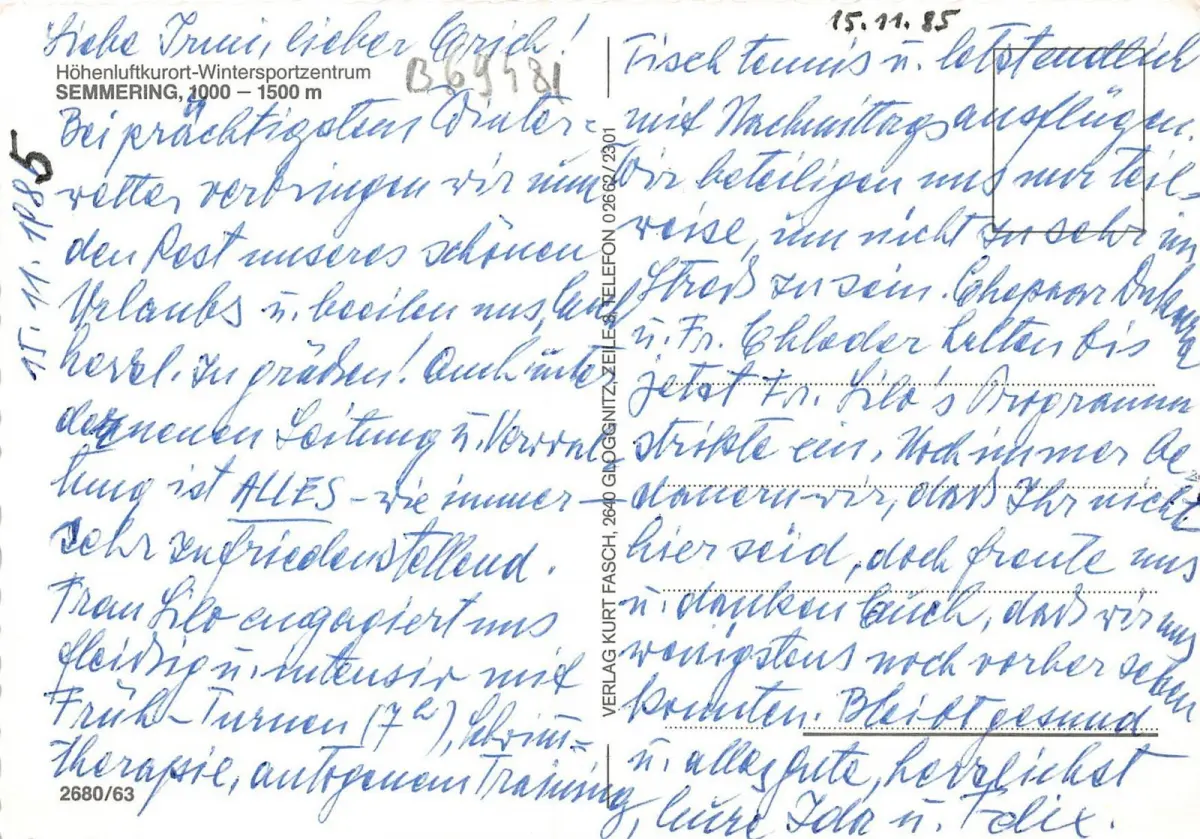 15.11.85
Liebe Irmi, lieber Erich!
Höhenluftkurort-Wintersportzentrum
SEMMERING, 1000 – 1500 m
B 69481
15.11.1985
Bei prächtigstem Winter-
wetter verbringen wir nun
den Rest unseres schönen
Urlaubs u. beeilen uns, Euch
herzl. zu grüßen! Auch unter
der neuen Leitung u. Verwal-
tung ist ALLES – wie immer –
sehr zufriedenstellend.
Frau Lilo engagiert uns
fleißig u. intensiv mit
Früh-Turnen (7h), Schwimm-
therapie, autogenem Training,
2680/63
VERLAG KURT FASCH, 2640 GLOGGNITZ, ZEILE 8, TELEFON 02662/2301
Tischtennis u. letztendlich
mit Nachmittagsausflügen.
Wir beteiligen uns nur teil-
weise, um nicht zu sehr im
Streß zu sein. Ehepaar
u. Fr. Chloder halten bis
jetzt Fr. Lilo's Programm
strikte ein. Noch immer be-
dauern wir, daß Ihr nicht
hier seid, doch freute uns
u. danken Euch, daß wir uns
wenigstens noch vorher sehen
konnten. Bleibt gesund
u. alles Gute, herzlichst
Eure Ida u. Felix.